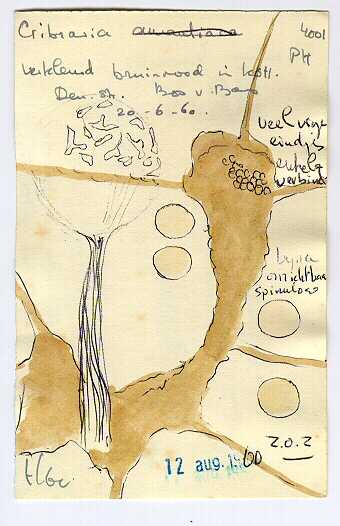 Cribraria aurantiaca
4001
PH
verkleurd bruinrood in KOH.
Den. str. Bos v. Bos
20-6-60.
veel vrije
eindjes
enkele
verbind
bijna
onzichtbaar
spinuloos
2.0.2
12 aug. 1960